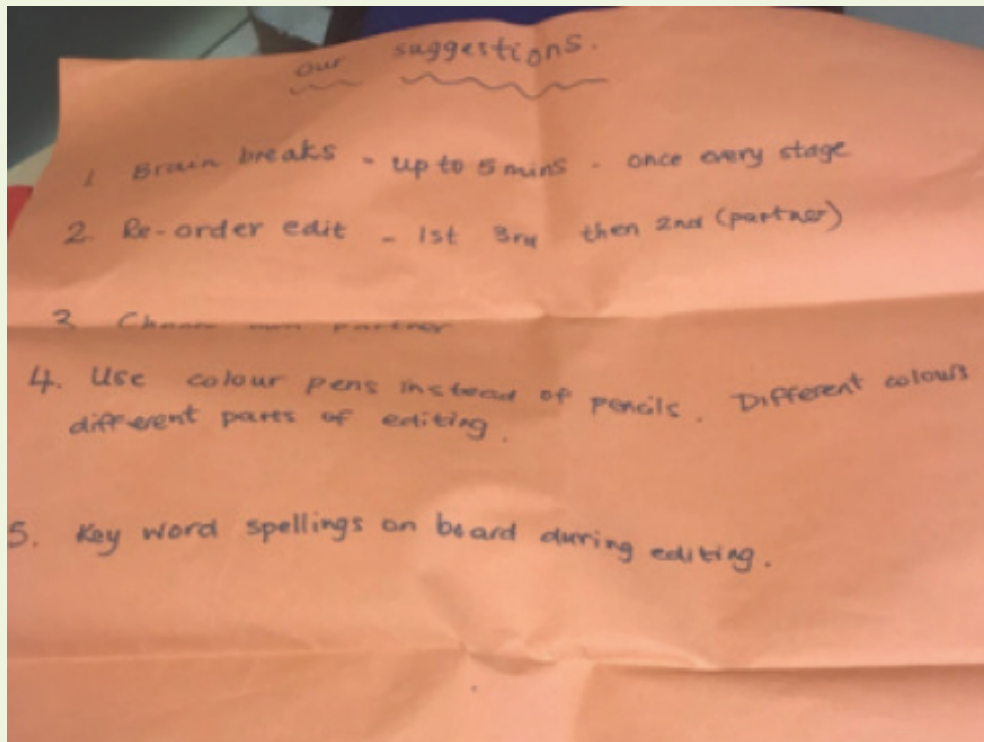 Our suggestions.
1 Brain breaks - up to 5 mins - once every stage
2. Re-order edit - 1st 3rd then 2nd (partner)
3 Choose own partner
4. Use colour pens instead of pencils. Different colours
different parts of editing.
5. Key word spellings on board during editing.